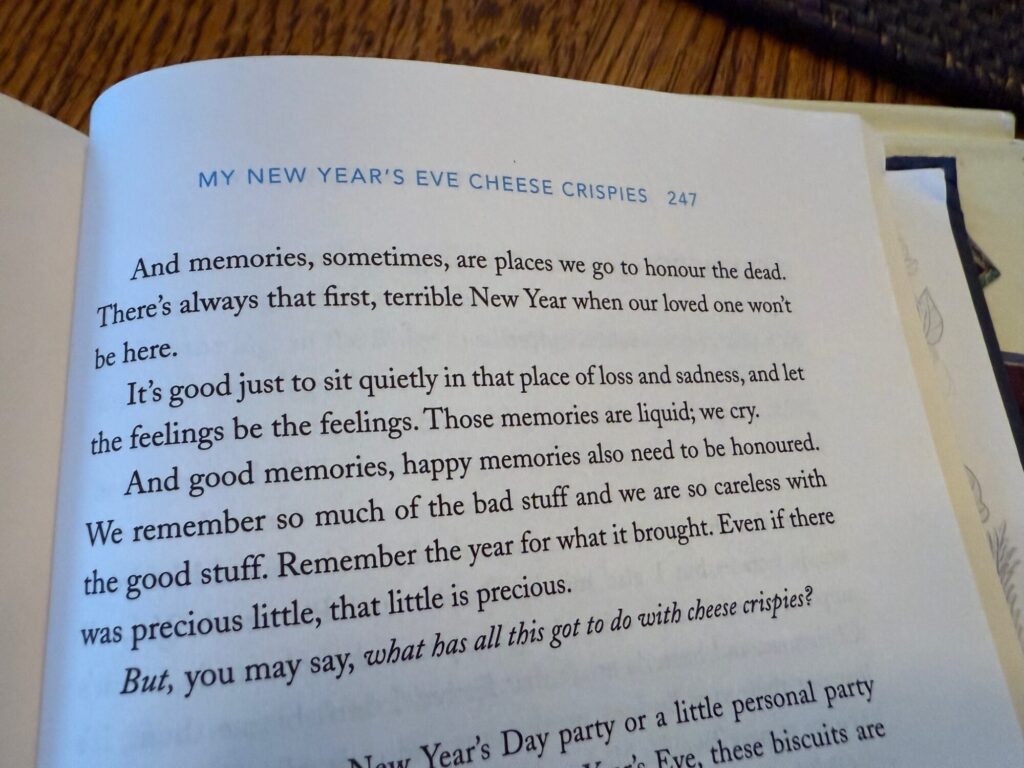 MY NEW YEAR'S EVE CHEESE CRISPIES 247
And memories, sometimes, are places we go to honour the dead.
There's always that first, terrible New Year when our loved one won't
be here.
It's good just to sit quietly in that place of loss and sadness, and let
the feelings be the feelings. Those memories are liquid; we cry.
And good memories, happy memories also need to be honoured.
We remember so much of the bad stuff and we are so careless with
the good stuff. Remember the year for what it brought. Even if there
was precious little, that little is precious.
But, you may say, what has all this got to do with cheese crispies?
New Year's Day party or a little personal party
Year's Eve, these biscuits are